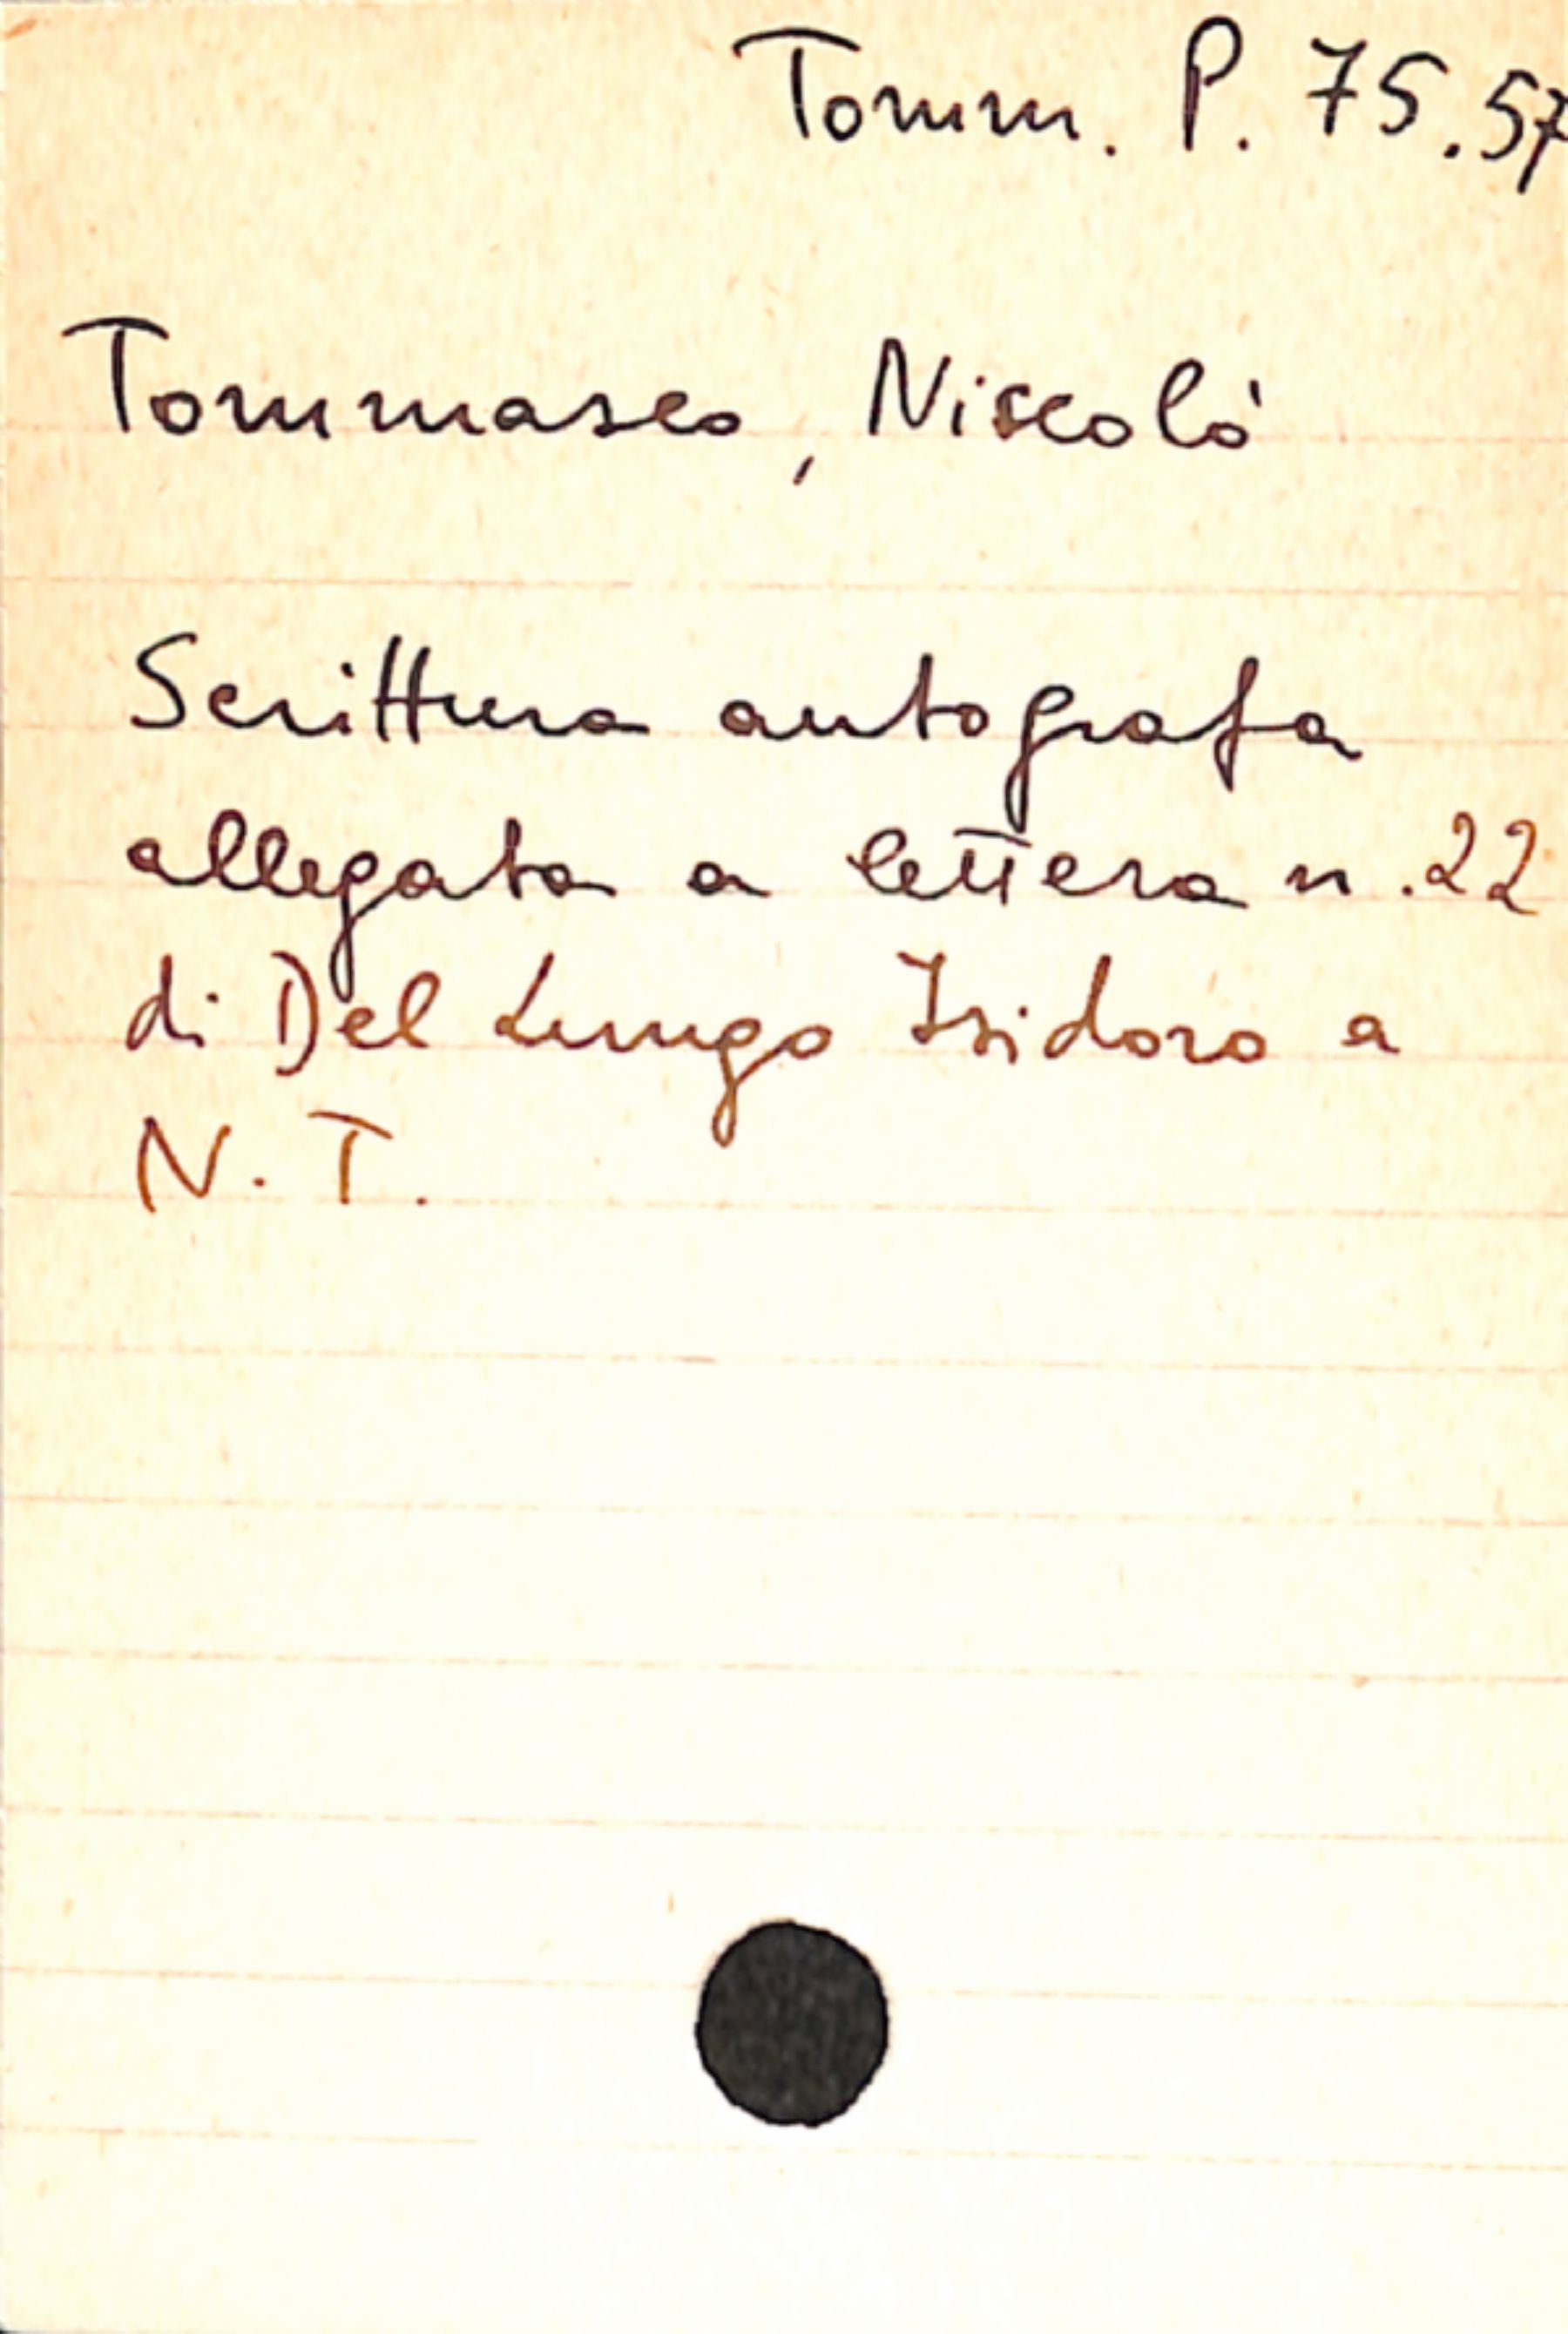 Tomm. P. 75.57
Tommaseo, Niccolò
Scrittura autografa
allegata a lettera n. 22
di Del Lungo Isidoro a
N. T.